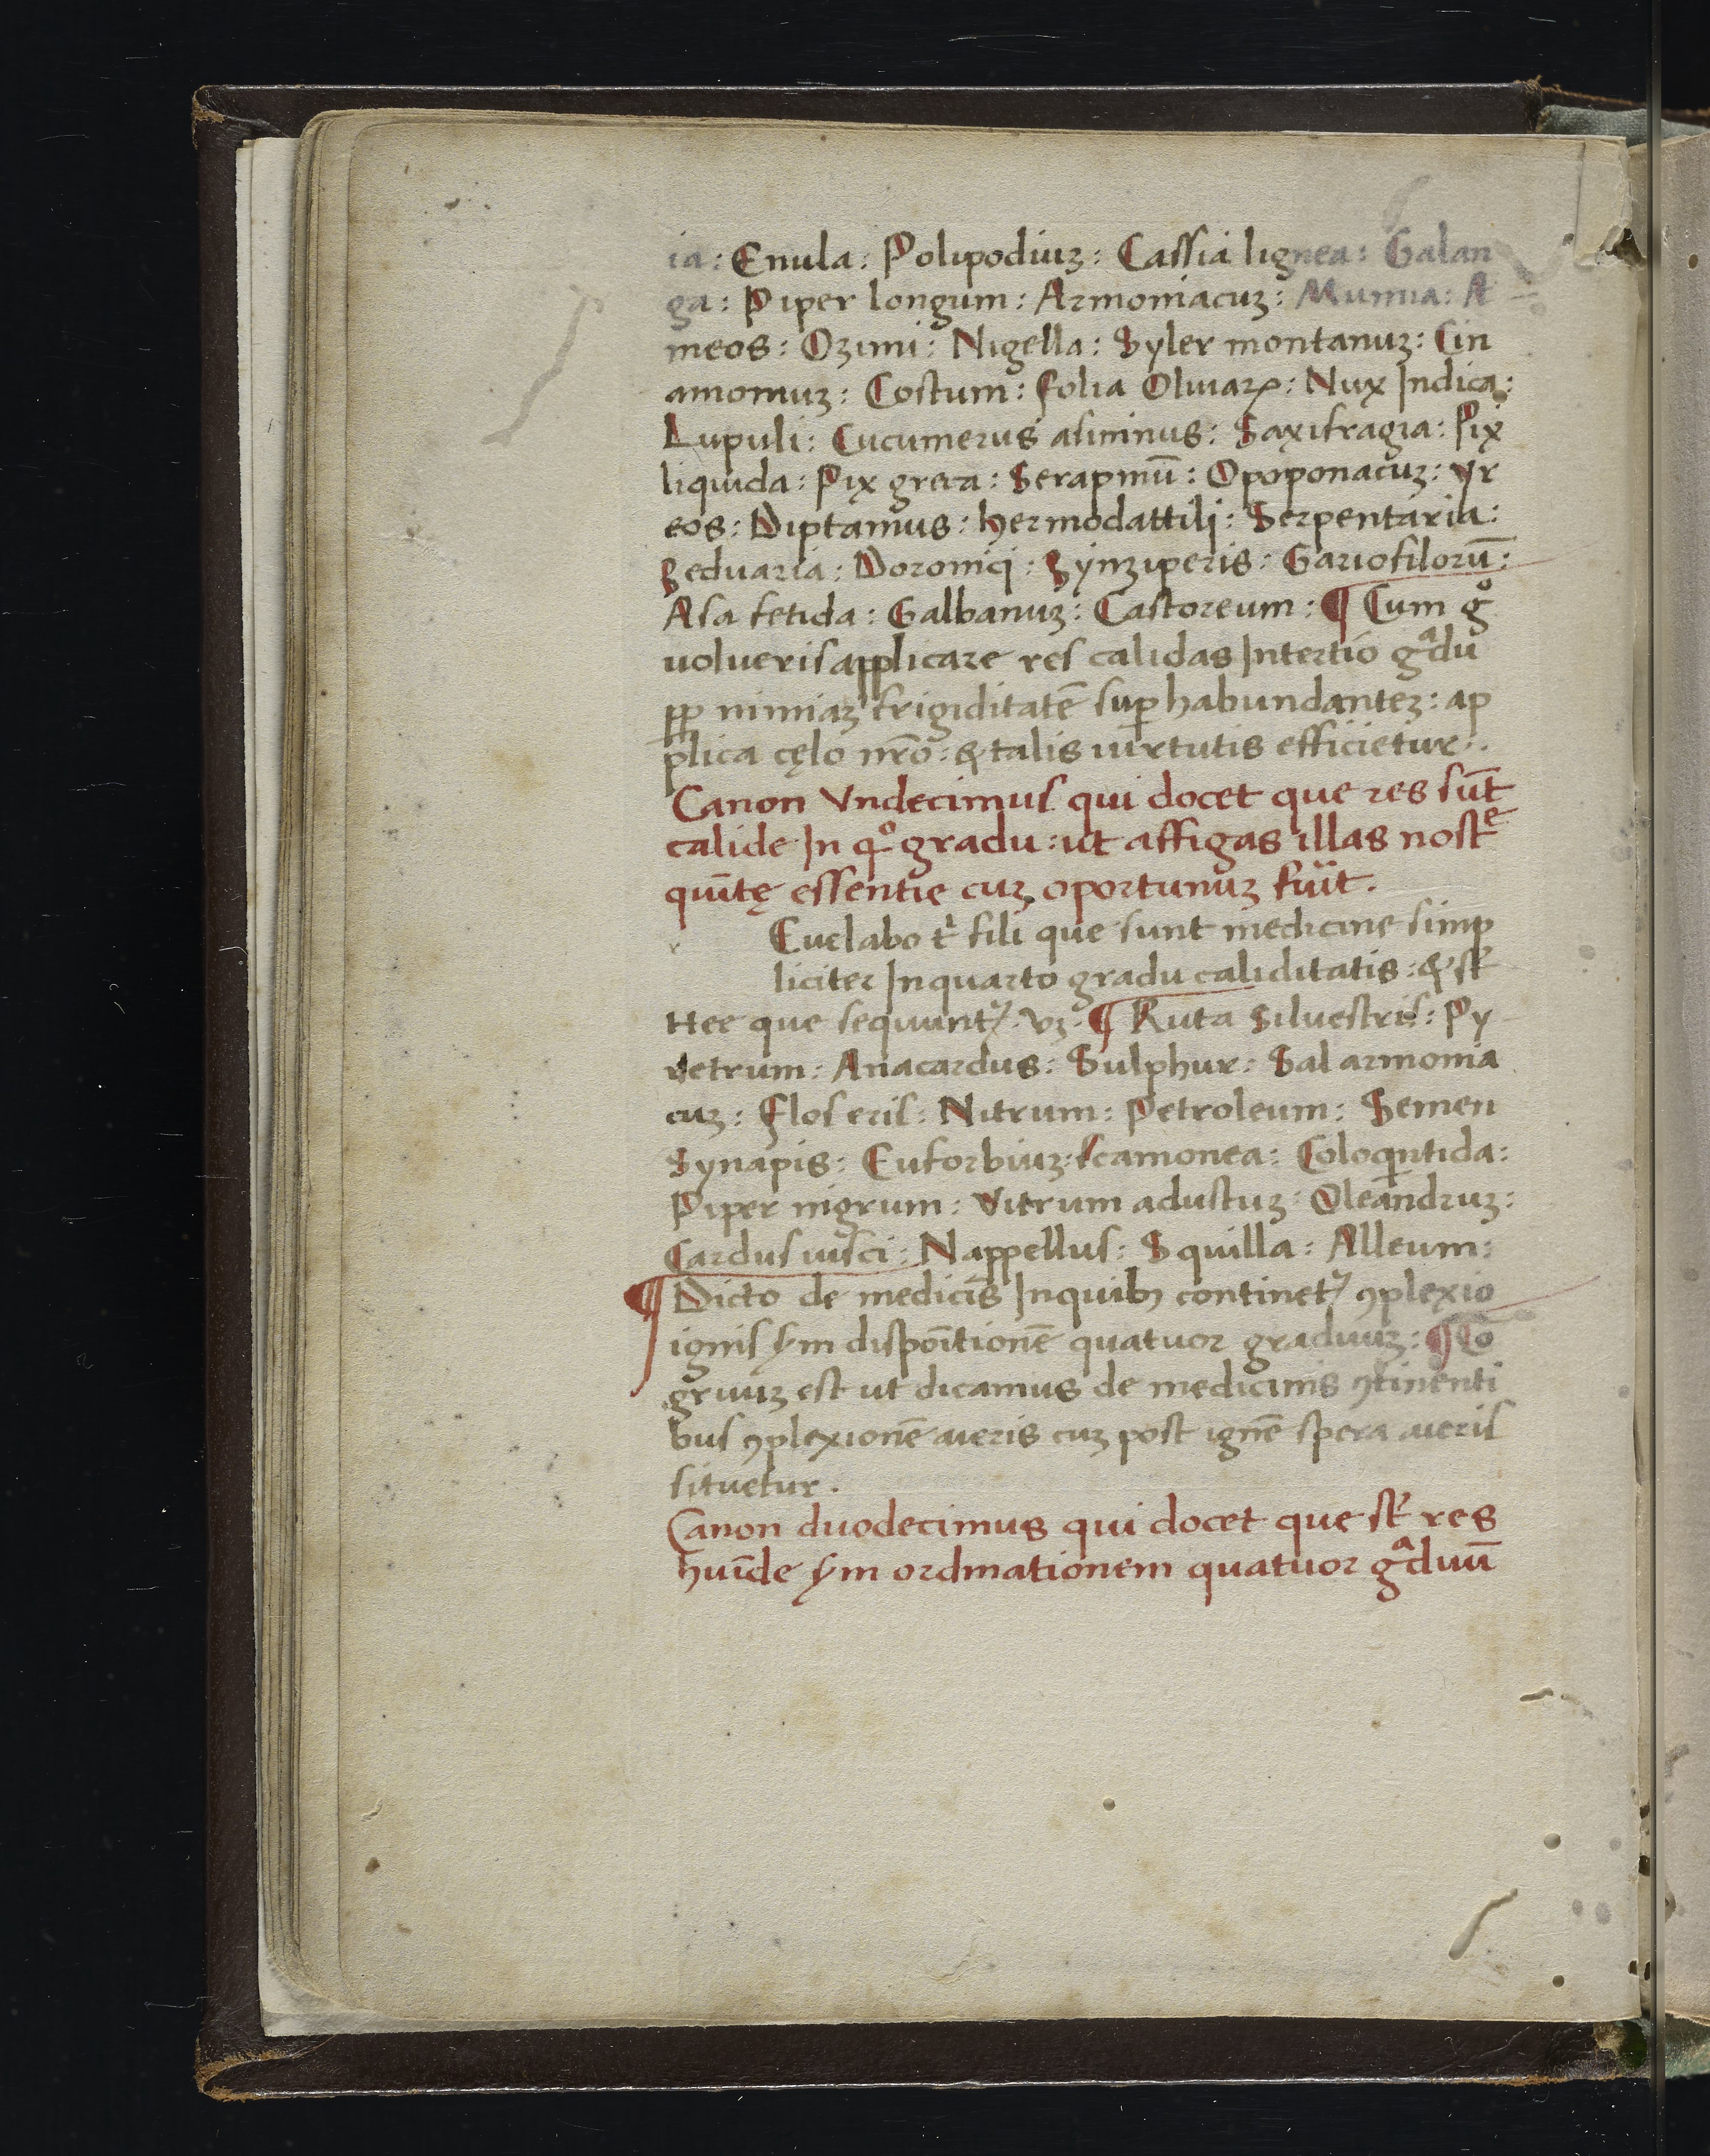 ia: Enula: Polipodiuꝫ: Cassia lignea: Galan
ga: Piper longum: Armoniacuꝫ: Mumia: A
meos: Ozimi: Nigella: Syler montanuꝫ: Cin
amomuꝫ: Costum: folia Oliuaꝝ: Nux Indica:
Lupuli: Cucumerus asininus: Saxifragia: Pix
liquida: Pix greca: Serapinū: Opoponacuꝫ: yr
eos: Diptamus: hermodattili: Serpentaria:
Zeduaria: Doronici: Zynziperis: Gariofilorū:
Asa fetida: Galbanuꝫ: Castoreum: ¶ Cum gͦ
uolueris applicare res calidas In tertio gͣdu
ꝓp nimiaꝫ frigiditatē suꝑhabundanteꝫ: ap
plica cęlo nr̄o: & talis uirtutis efficietur.
Canon Vndecimus qui docet que res sūt
calide In qͦ gradu: ut affigas illas nostͤ
quītę essentie cuꝫ oportunuꝫ fuit.
Euelabo tͥ fili que sunt medicine simp
liciter In quarto gradu caliditatis: & st̄
Hee que sequuntᷣ. vꝫ. ¶ Ruta Siluestris: Py
retrum: Anacardus: Sulphur: Sal armonia
cuꝫ: flos eris: Nitrum: Petroleum: Semen
Synapis: Euforbiuꝫ: scamonea: Coloqͥntida:
Piper nigrum: Vitrum adustuꝫ: Oleandruꝫ:
Cardus uisci: Nappellus: Squilla: Alleum:
¶ Dicto de medicīs In quibꝫ continetᷣ ꝯplexio
ignis ẜm dispoītionē quatuor graduuꝫ: ¶ Cō
gruuꝫ est ut dicamus de medicinis ꝯtinenti
bus ꝯplexionē aieris cuꝫ post ignē spera aieris
situetur.
Canon duodecimus qui docet que st̄ res
huīde ẜm ordinationem quatuor gͣduū